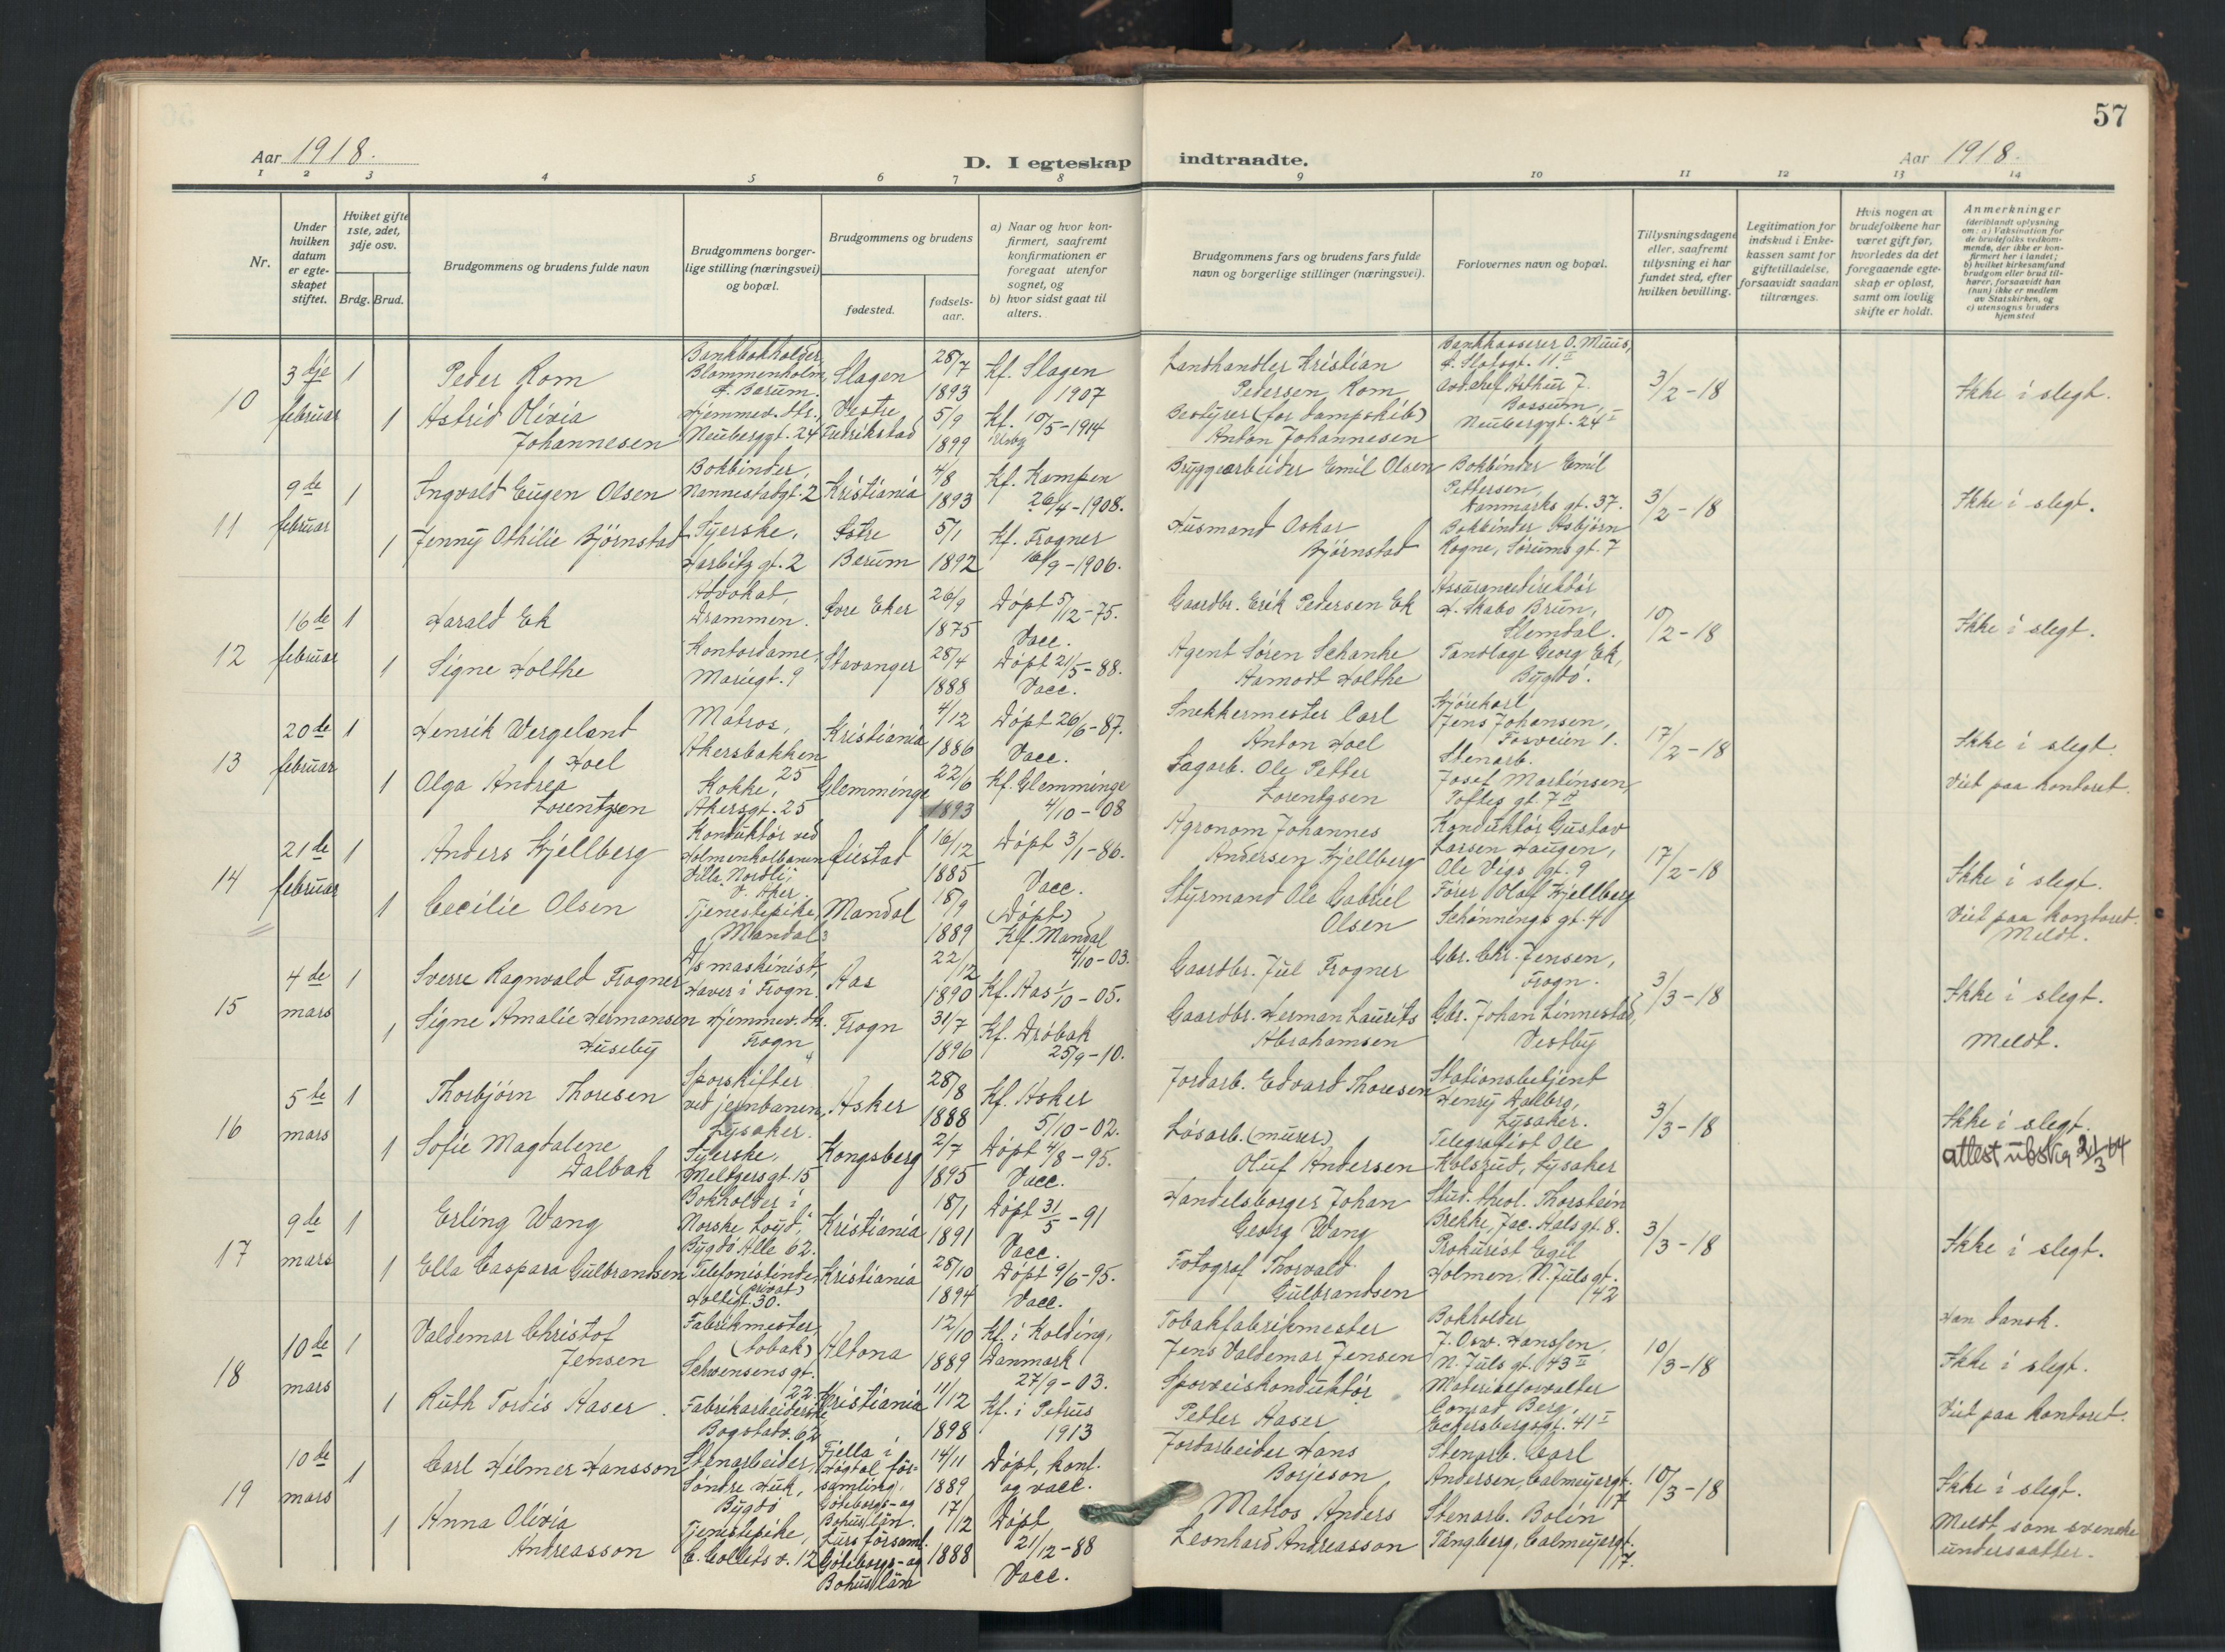 57
Aar 1918.
D. I egteskap indtraadte.
Aar 1918.
1 2 3 4 5 6 7 8 9 10 11 12 13 14
Nr.
Under hvilken datum er egteskapet stiftet.
Hviket gifte 1ste, 2det, 3dje osv.
Brdg. Brud.
Brudgommens og brudens fulde navn
Brudgommens borgerlige stilling (næringsvei) og bopæl.
Brudgommens og brudens
fødested.
fødsels-aar.
a) Naar og hvor konfirmert, saafremt konfirmationen er foregaat utenfor sognet, og
b) hvor sidst gaat til alters.
Brudgommens fars og brudens fars fulde navn og borgerlige stillinger (næringsvei).
Forlovernes navn og bopæl.
Tillysningsdagene eller, saafremt tillysning ei har fundet sted, efter hvilken bevilling.
Legitimation for indskud i Enkekassen samt for giftetilladelse, forsaavidt saadan tiltrænges.
Hvis nogen av brudefolkene har været gift før, hvorledes da det foregaaende egteskap er opløst, samt om lovlig skifte er holdt.
Anmerkninger
(deriblandt oplysning om: a) Vaksination for de brudefolks vedkommende, der ikke er konfirmert her i landet; b) hvilket kirkesamfund brudgom eller brud tilhører, forsaavidt han (hun) ikke er medlem av Statskirken, og c) utensogns bruders hjemsted
10 3dje februar 1 Peder Rom Bankbokholder, Blommenholm, V. Bærum. Slagen 28/7 1893 Kf. Slagen 1907 Landhandler Kristian Pedersen Rom Bankkasserer O. Muus, Slotsgt. 11 II 3/2-18 Ikke i slegt.
1 Astrid Olivia Johannesen Hjemmev. dtr. Neuberggt. 24 Vestre Fredrikstad 5/9 1899 Kf. 10/5-1914 Bestyrer (for dampskib) Anton Johannesen Avd.chef Arthur J. Bossum, Neuberggt. 24 I
11 9de februar 1 Ingvald Eugen Olsen Bokbinder, Nannestadgt. 2 Kristiania 4/8 1893 Kf. Kampen 26/4-1908. Bryggearbeider Emil Olsen Bokbinder Emil Pettersen, Danmarks gt. 37. 3/2-18 Ikke i slegt.
1 Jenny Othilie Bjørnstad Syerske, Harbitz gt. 2 Østre Berum 5/1 1892 Kf. Frogner 16/9-1906. Husmand Oskar Bjørnstad Bokbinder Asbjørn Rogne, Sørums gt. 7
12 16de februar 1 Harald Ek Advokat, Drammen. Øvre Eker 26/9 1875 Døpt 5/12-75. Vacc. Gaardbr. Erik Pedersen Ek Assurancedirektør H. Skabo Brun, Slemdal. 10/2-18 Ikke i slegt.
1 Signe Holthe Kontordame, Mariegt. 9 Stavanger 28/4 1888 Døpt 21/5-88. Vacc. Agent Søren Schanke Aamodt Holthe Tandlæge Georg Ek, Bygdø.
13 20de februar 1 Henrik Wergeland Hoel Matros, Akersbakken 25 Kristiania 4/12 1886 Døpt 26/6-87. Vacc. Snekkermester Carl Anton Hoel Kjørekarl Jens Johansen, Fosveien 1. 17/2-18 Ikke i slegt.
1 Olga Andrea Lorentzen Kokke, Akersgt. 25 Glemminge 22/6 1893 Kf. Glemminge 4/10-08 Sagarb. Ole Petter Lorentzen Stenarb. Josef Martinsen, Toftes gt. 7 II Viet paa kontoret.
14 21de februar 1 Anders Kjellberg Konduktør ved Holmenkolbanen, Villa "Nordli", V. Aker. 16/12 1885 Døpt 3/1-86. Vacc. Agronom Johannes Andersen Kjellberg Konduktør Gustav Larsen Haugen, Ole Vigs gt. 9 17/2-18 Ikke i slegt.
1 Cecilie Olsen Tjenestepike, Mandal Mandal 18/9 1889 (Døpt) Kf. Mandal 4/10-03. Styrmand Ole Gabriel Olsen Fører Olaf Kjellberg Schønnings gt. 40 Viet paa kontoret. Meldt.
15 4de mars 1 Sverre Ragnvald Frogner D/s maskinist, Haver i Frogn. Aas 22/12 1890 Kf. Aas 1/10-05. Gaardbr. Jul Frogner Gbr. Chr. Jensen, Frogn. 3/3-18 Ikke i slegt.
1 Signe Amalie Hermansen Huseby Hjemmev. dtr. Frogn Frogn 31/7 1896 Kf. Drøbak 25/9-10. Gaardbr. Herman Laurits Abrahamsen Gbr. Johan Linnestad, Vestby Meldt.
16 5te mars 1 Thorbjørn Thoresen Sporskifter ved jernbanen, Lysaker. Asker 28/8 1888 Kf. Asker 5/10-02. Jordarb. Edvard Thoresen Stationsbetjent Henry Aalberg, Lysaker. 3/3-18 Ikke i slegt.
1 Sofie Magdalene Dalbak Syerske, Meltzersgt. 15 Kongsberg 2/7 1895 Døpt 4/8-95. Vacc. Løsarb. (murer) Oluf Andersen Telegrafist Ole Kolsrud, Lysaker attest
17 9de mars 1 Erling Wang Bokholder i "Norske Loyd", Bygdø Alle 62. Kristiania 18/1 1891 Døpt 31/5-91 Vacc. Handelsborger Johan Georg Wang Stud. theol. Thorstein Brekke, Jac. Aals gt. 8. 3/3-18 Ikke i slegt.
1 Ella Caspara Gulbrandsen Telefonistinde, (privat) Holtegt. 30. Kristiania 28/10 1894 Døpt 9/6-95. Vacc. Fotograf Thorvald Gulbrandsen Prokurist Egil Holmen, N. Juls gt. 42
18 10de mars 1 Valdemar Christof Jensen Fabrikmester (tobak) Schwensens gt. 22 Altona 12/10 1889 Kf. i Kolding, Danmark 27/9-03. Tobakfabrikmester Jens Valdemar Jensen Bokholder J. Osv. Hanssen, N. Juls gt. 43 II 10/3-18 Han dansk. Ikke i slegt.
1 Ruth Tordis Aaser Fabrikarbeiderske, Bogstadv. 62 Kristiania 11/12 1898 Kf. i Petrus 1913 Sporveiskonduktør Petter Aaser Materialforvalter Conrad Berg, Eckersbergsgt. 41 I Viet paa kontoret.
19 10de mars 1 Carl Hilmer Hansson Stenarbeider, Søndre Huk, Bygdø Fjella i Högdal församling, Göteborgs- og Bohuslän. 14/11 1889 Døpt, konf. og vacc. Jordarbeider Hans Borjeson Stenarb. Carl Andersen, Calmeyergt. 17 10/3-18 Ikke i slegt.
1 Anna Olivia Andreasson Tjenestepike, C. Colletts v. 12 Lurs församl. Göteborgs- og Bohuslän 17/12 1888 Døpt 21/12-88 Vacc. Matros Anders Leonhard Andreasson Stenarb. Bolin Tångberg, Calmeyergt. 17. Meldt som svenske undersaatter.